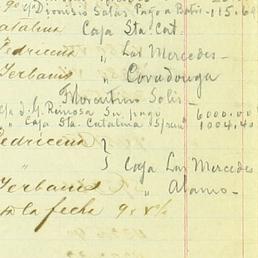 9º c/ Dionisio Salas Pago a Batis - 115.6
atalina Caja Sta Cat.
Pedriceña " Las Mercedes -
Yerbanis " Covadonga
Florentino Solis -
c/a d. G. Reinosa Su pago 6000.00
" Caja Sta. Catalina 1004.40
Pedriceña
} Caja Las Mercedes
Yerbanis " Alamo -
la fecha